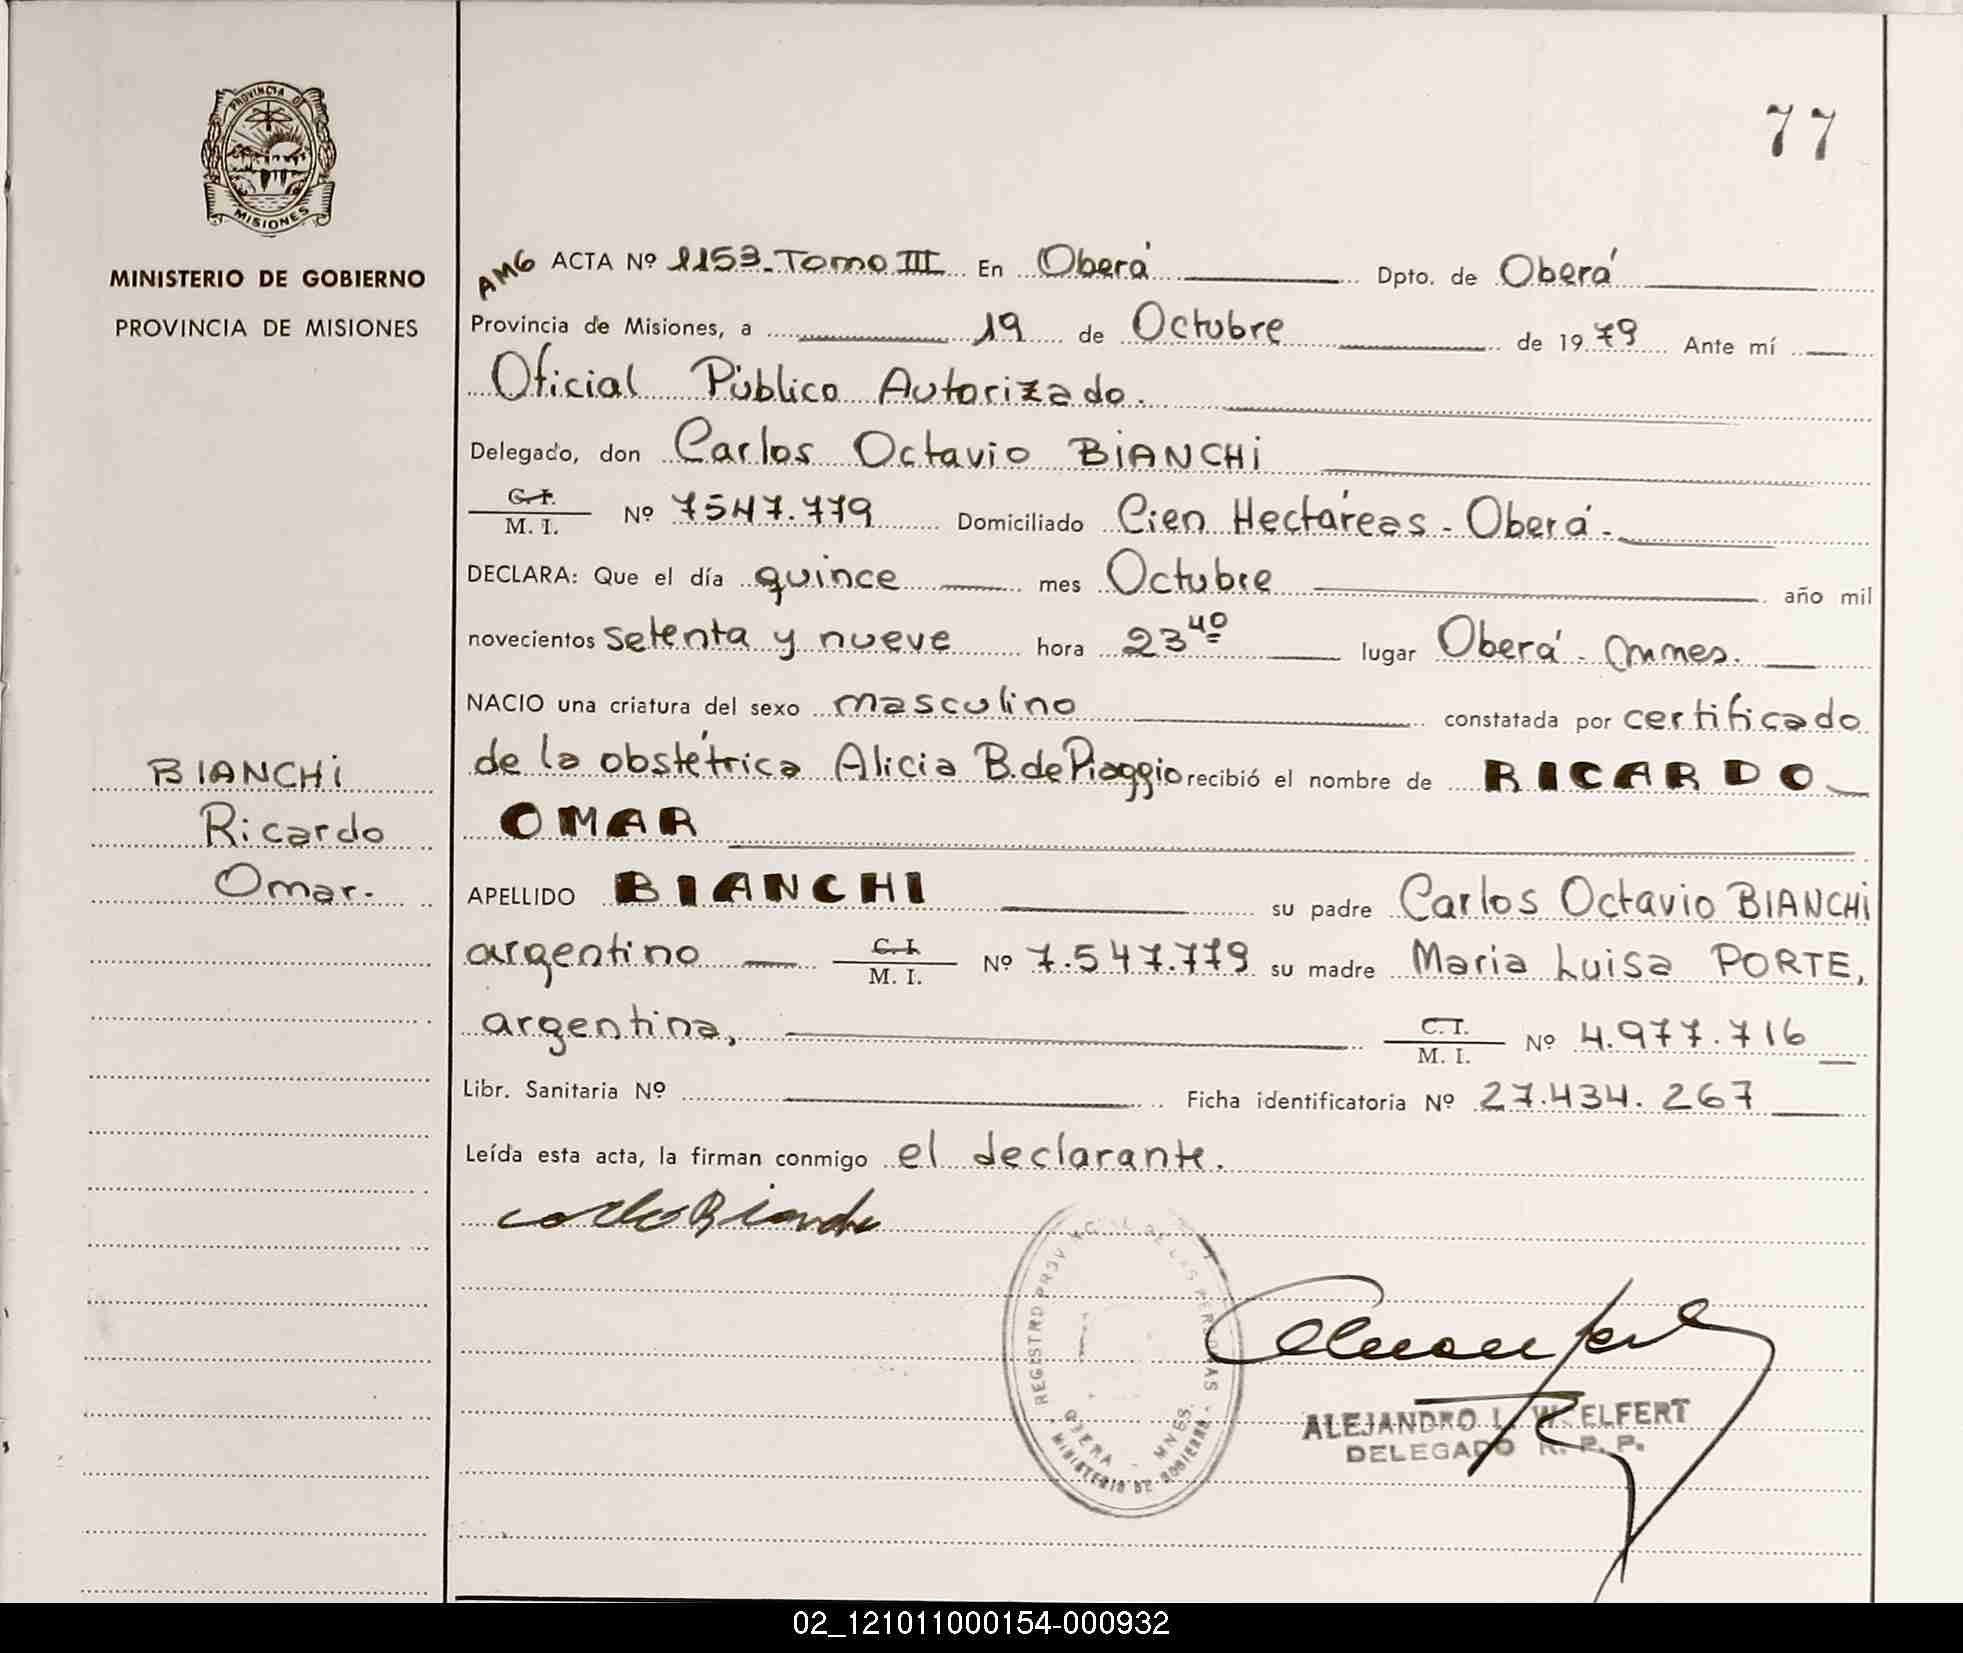 PROVINCIA DE
MISIONES
MINISTERIO DE GOBIERNO
PROVINCIA DE MISIONES
BIANCHI
Ricardo
Omar.
77
AMG ACTA Nº 1153-Tomo III En Oberá Dpto. de Oberá
Provincia de Misiones, a 19 de Octubre de 1979 Ante mí
Oficial Público Autorizado.
Delegado, don Carlos Octavio BIANCHI
C. I. / M. I. Nº 7547.779 Domiciliado Cien Hectáreas - Oberá -
DECLARA: Que el día quince mes Octubre año mil
novecientos setenta y nueve hora 23 40 lugar Oberá - Mnes.
NACIO una criatura del sexo masculino constatada por certificado
de la obstétrica Alicia B. de Piaggio recibió el nombre de RICARDO
OMAR
APELLIDO BIANCHI su padre Carlos Octavio BIANCHI
argentino C. I. / M. I. Nº 7.547.779 su madre Maria Luisa PORTE,
argentina, C. I. / M. I. Nº 4.977.716
Libr. Sanitaria Nº Ficha identificatoria Nº 27.434.267
Leída esta acta, la firman conmigo el declarante.
Carlos Bianchi
REGISTRO PROVINCIAL DE LAS PERSONAS
OBERA - MNES.
MINISTERIO DE GOBIERNO
ALEJANDRO L. WELFERT
DELEGADO R. P. P.
02_121011000154-000932